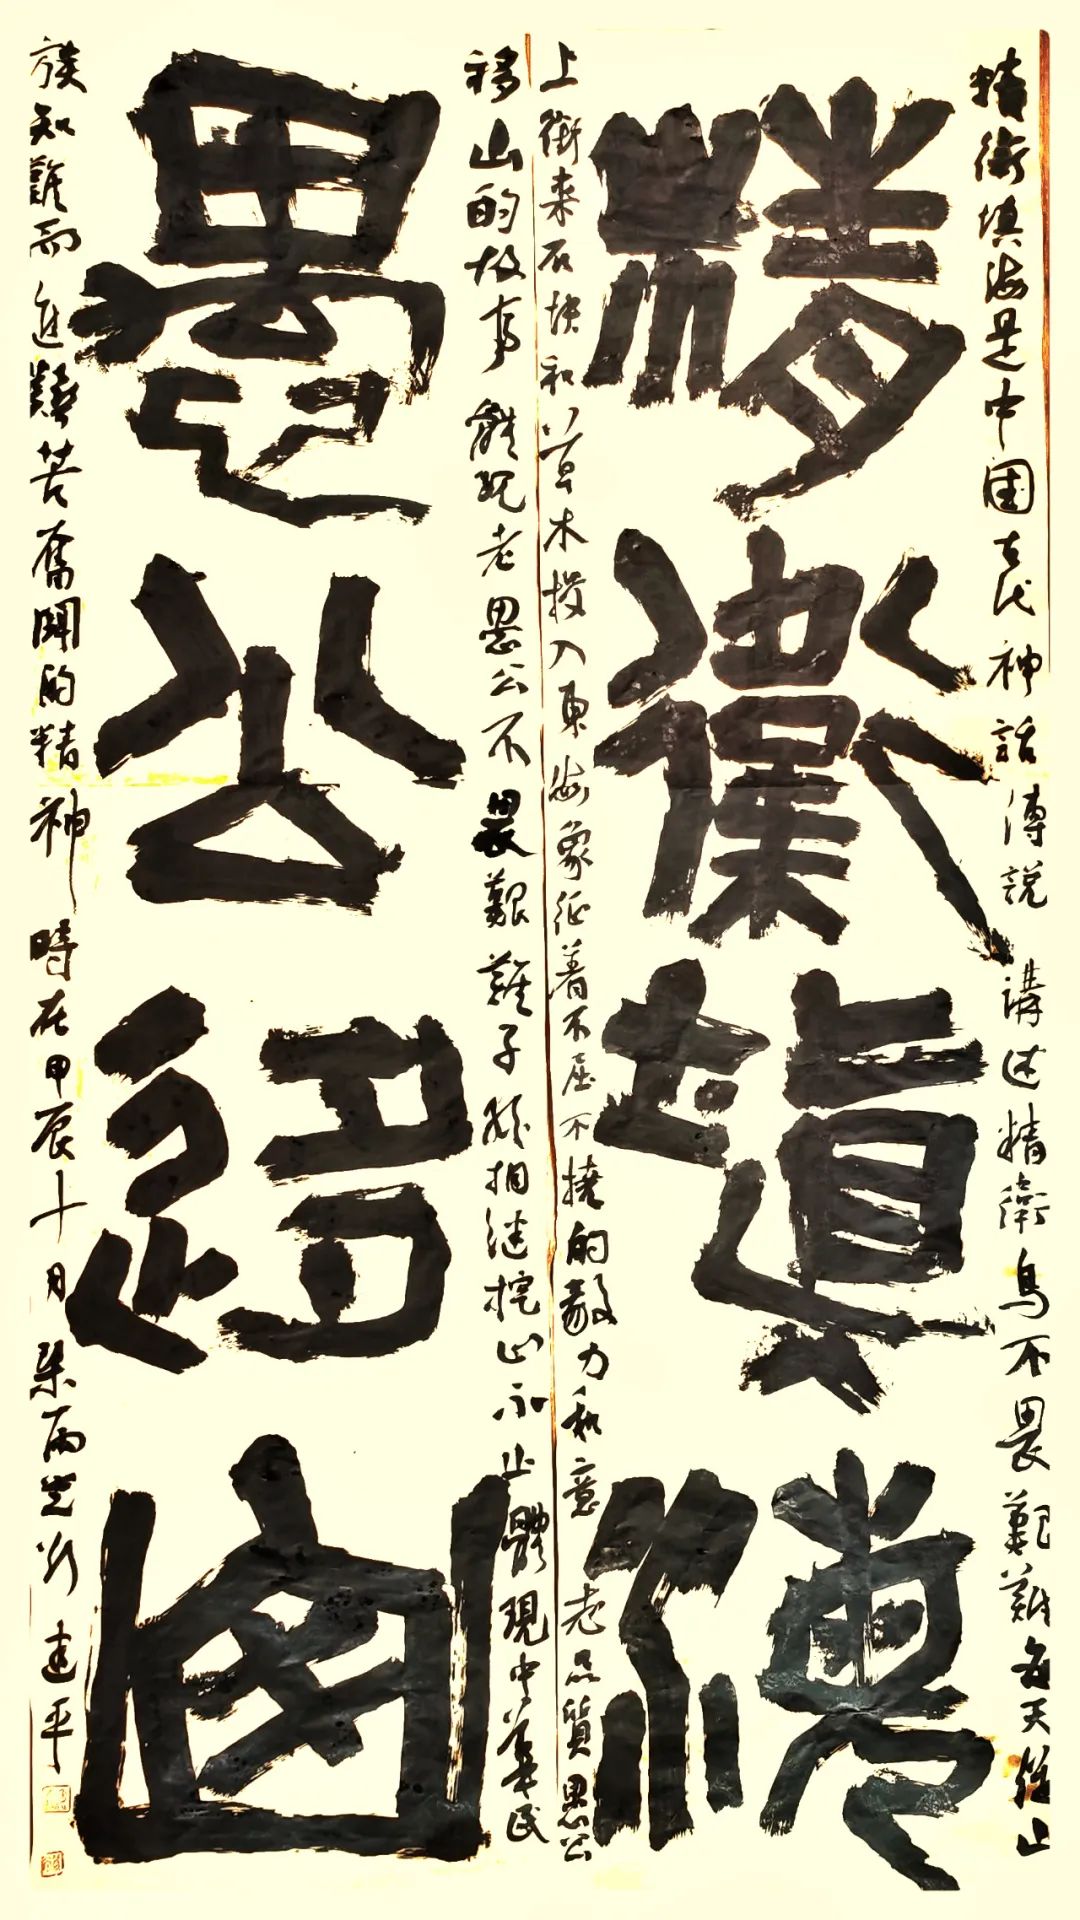 精衛填海是中國古代神話傳説講述精衛鳥不畏艱難每天從山
精衛填海
上銜来石块和草木投入東海象征着不屈不撓的毅力和意志品質愚公
移山的故事體现老愚公不畏艱難子孫相继挖山不止體現中華民
愚公移山
族知難而進艱苦奮鬪的精神時在甲辰十月建平